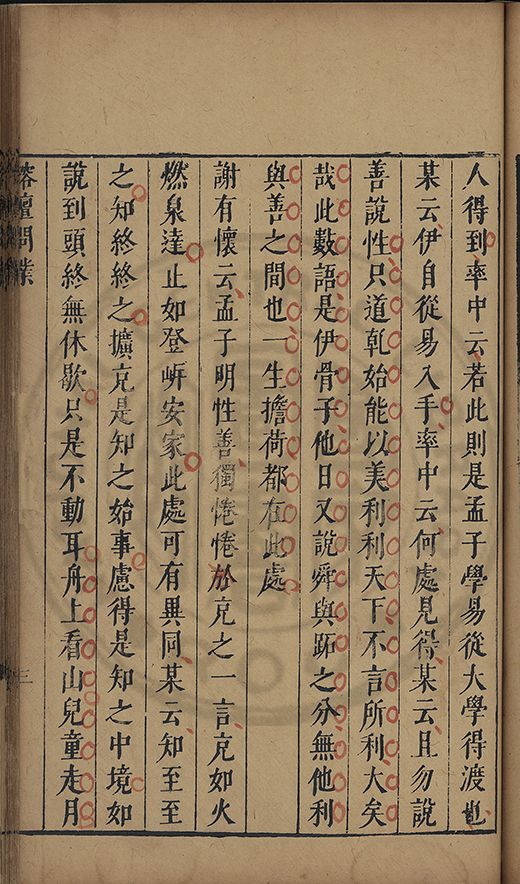 人得到率中云若此則是孟子學易從大學得渡也
某云伊自從易入手率中云何處見得某云且勿說
善說性只道乹始能以美利利天下不言所利大矣
哉此數語是伊骨子他日又說舜與跖之分無他利
與善之間也一生擔荷都在此處
謝有懷云孟子明性善獨惓惓於充之一言充如火
燃泉達止如登岍安家此處可有異同某云知至至
之知終終之擴充是知之始事慮得是知之中境如
說到頭終無休歇只是不動耳舟上看山兒童走月
榕壇問業
三